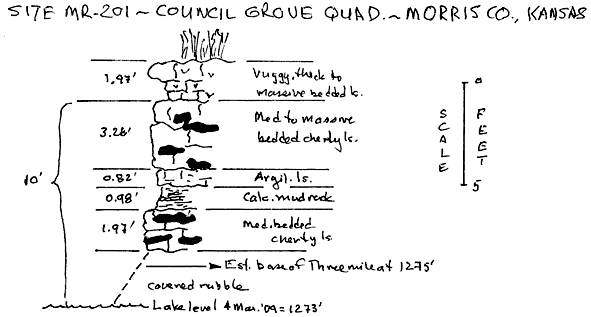 SITE MR-201 ~ COUNCIL GROVE QUAD. ~ MORRIS CO., KANSAS
1.97'
Vuggy, thick to
massive bedded ls.
3.26'
Med to massive
bedded cherty ls.
10'
0.82'
Argil. ls.
0.98'
Calc. mudrock
1.97'
Med. bedded
cherty ls.
Est. base of Threemile at 1275'
covered rubble
Lake level 4 Mar. '09 = 1273'
0
SCALE
FEET
5